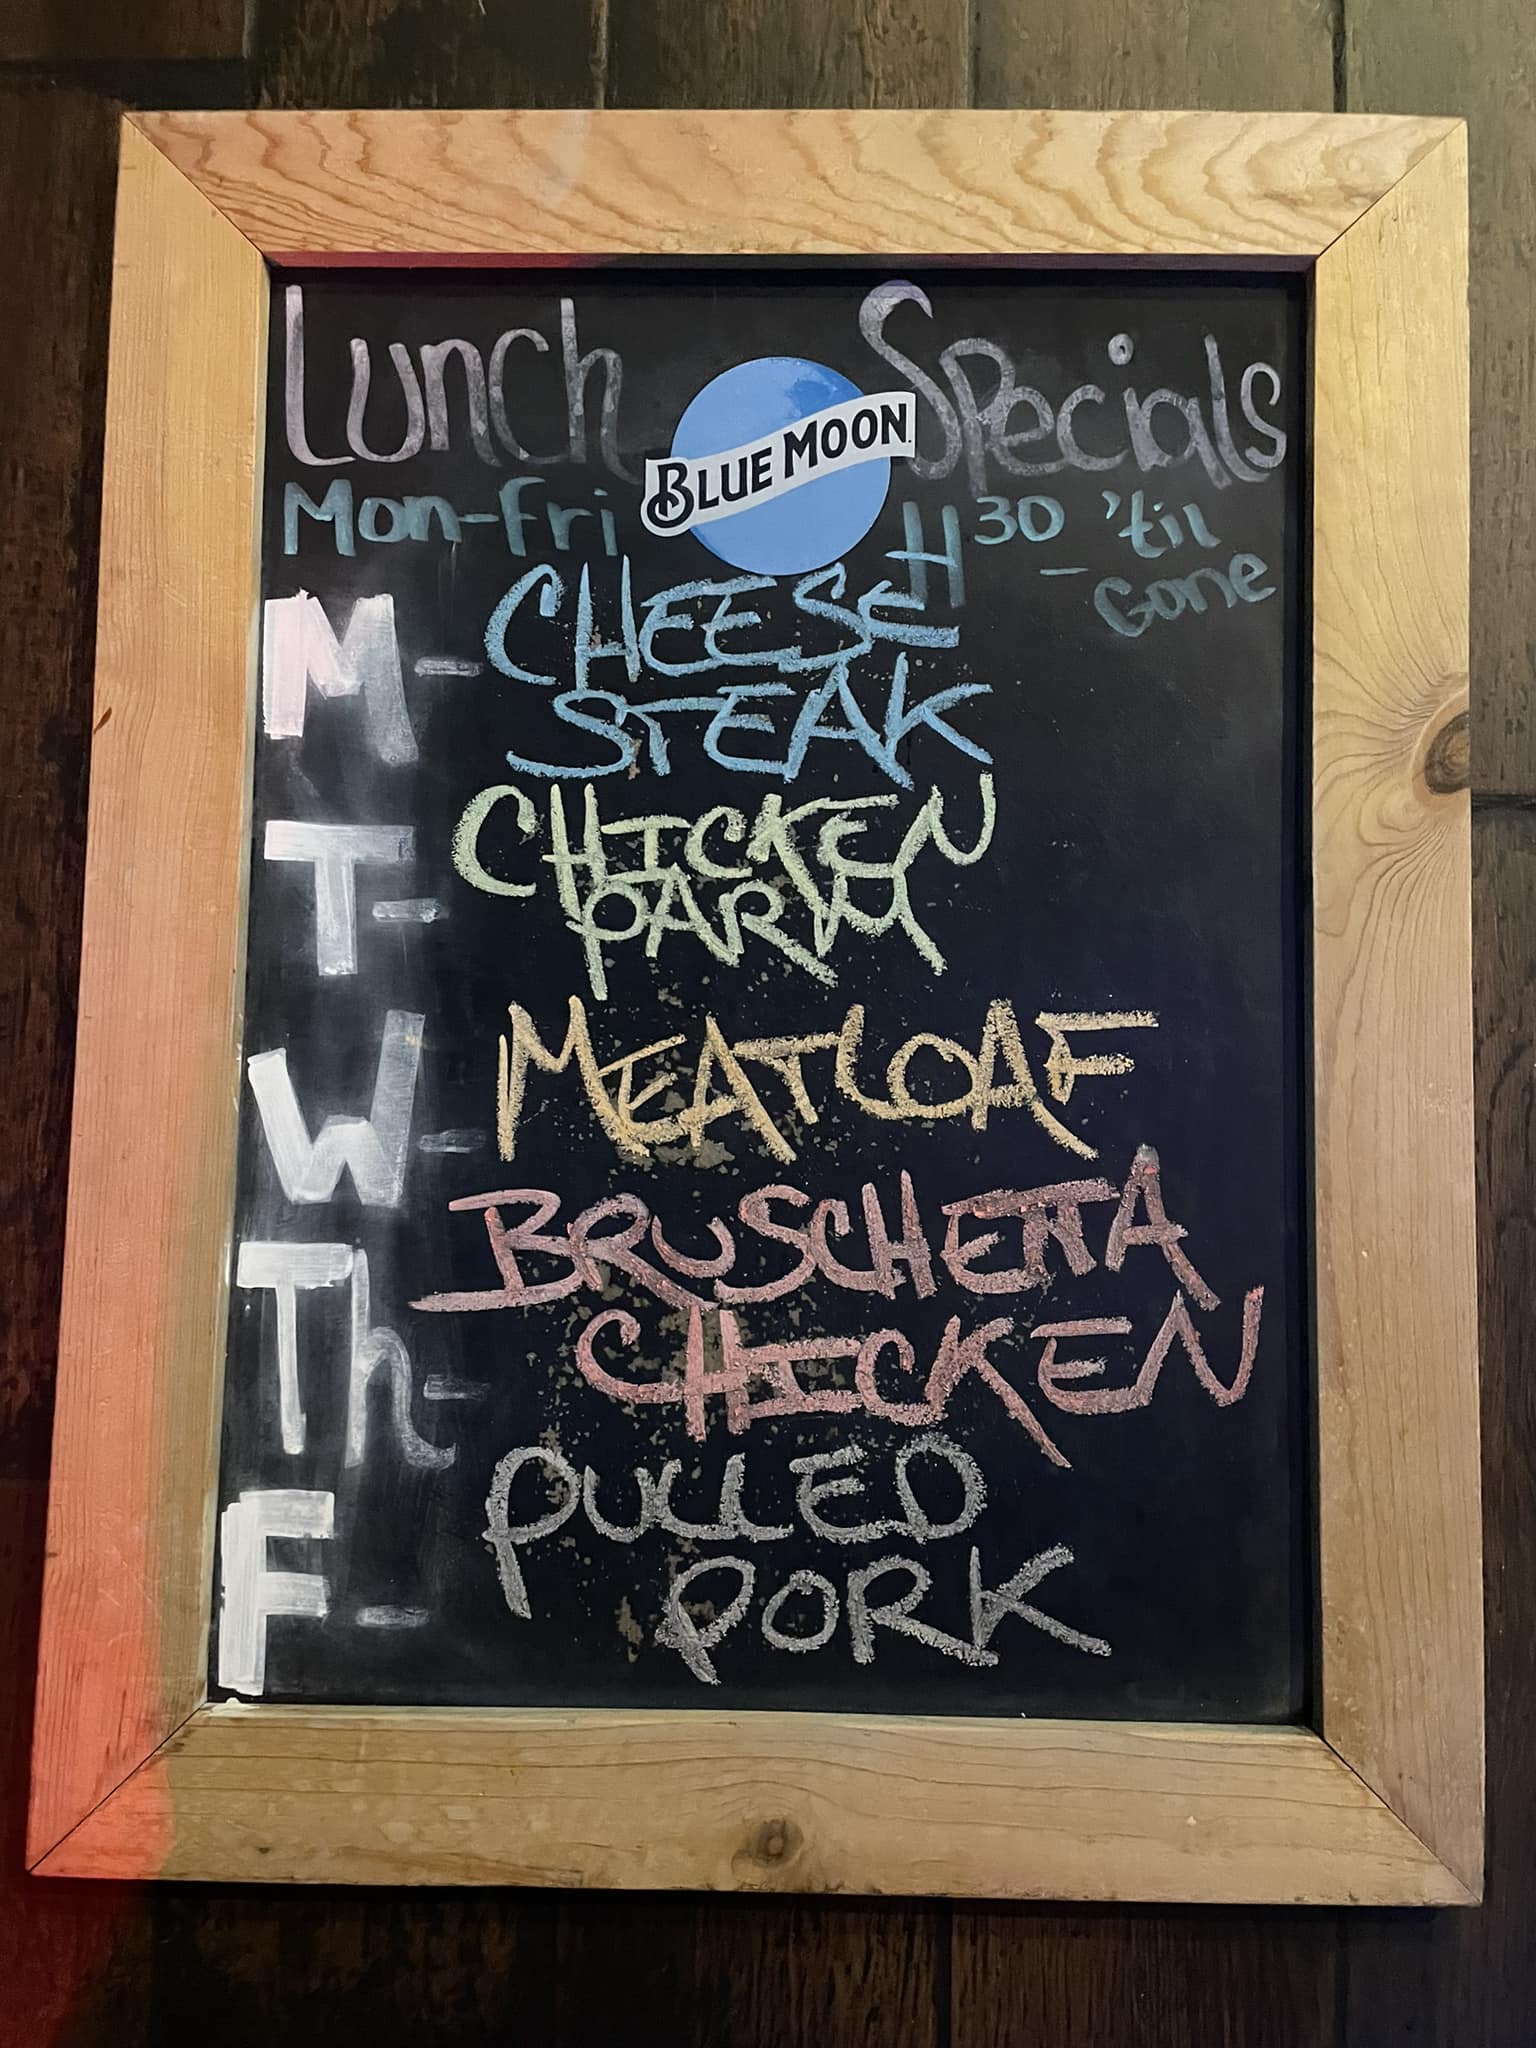 Lunch Specials
BLUE MOON
Mon-Fri 11 30 - 'til
Gone
M - CHEESE
STEAK
T - CHICKEN
PARM
W - MEATLOAF
Th - BRUSCHETTA
CHICKEN
F - PULLED
PORK